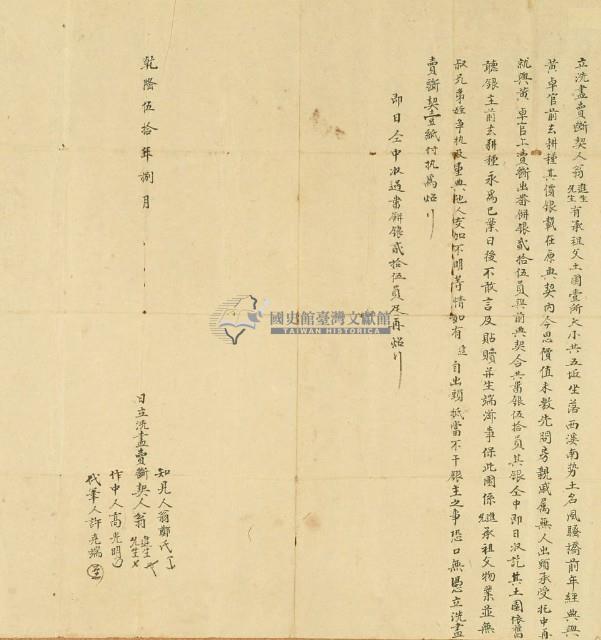 立洗盡賣斷契人翁進生先生有承祖父土園壹所大小共五坵坐落西淡南勢土名風騷橋前年經典與
黃卓官前去耕種其價銀載在原典契內今思價值未敷先問房親戚属無人出頭承受托中再
就與黃卓官上賣斷出畨餅銀貳拾伍員與前典契合共畨銀伍拾員其銀仝中即日收訖其土園依舊
聽銀主前去耕種永為己業日後不敢言及貼贖并生端滋事保此園係進先承祖父物業並無
叔兄弟姪爭执及重典他人交加不明等情如有進自出頭抵當不干銀主之事恐口無憑立洗盡
賣斷契壹紙付执為炤
即日仝中收過畨餅銀貳拾伍員足再炤
乾隆伍拾年捌月
日立洗盡賣斷契人翁進生先生
知見人翁鄭氏
作中人高光明
代筆人許堯端
國史館臺灣文獻館
TAIWAN HISTORICA